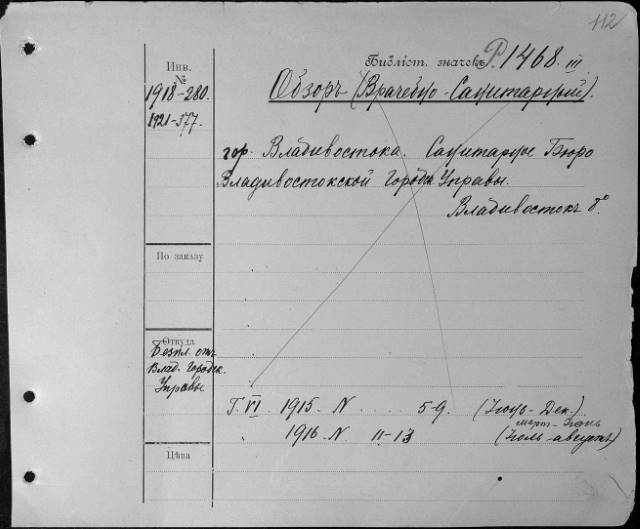 112
Библіот. значекъ P. 1468. III
Инв.
№
1918-280.
1921-377.
Обзоръ (Врачебно-Санитарный).
гор. Владивостока. Санитарное Бюро
Владивостокской Городск. Управы.
Владивостокъ 8°
По заказу
Откуда
Безпл. отъ
Влад. Городск.
Управы
Г. VI. 1915. N .... 5-9. (Іюнь-Дек.)
март-Іюнь
" 1916-N 11-13 (Іюль-августъ)
Цѣна